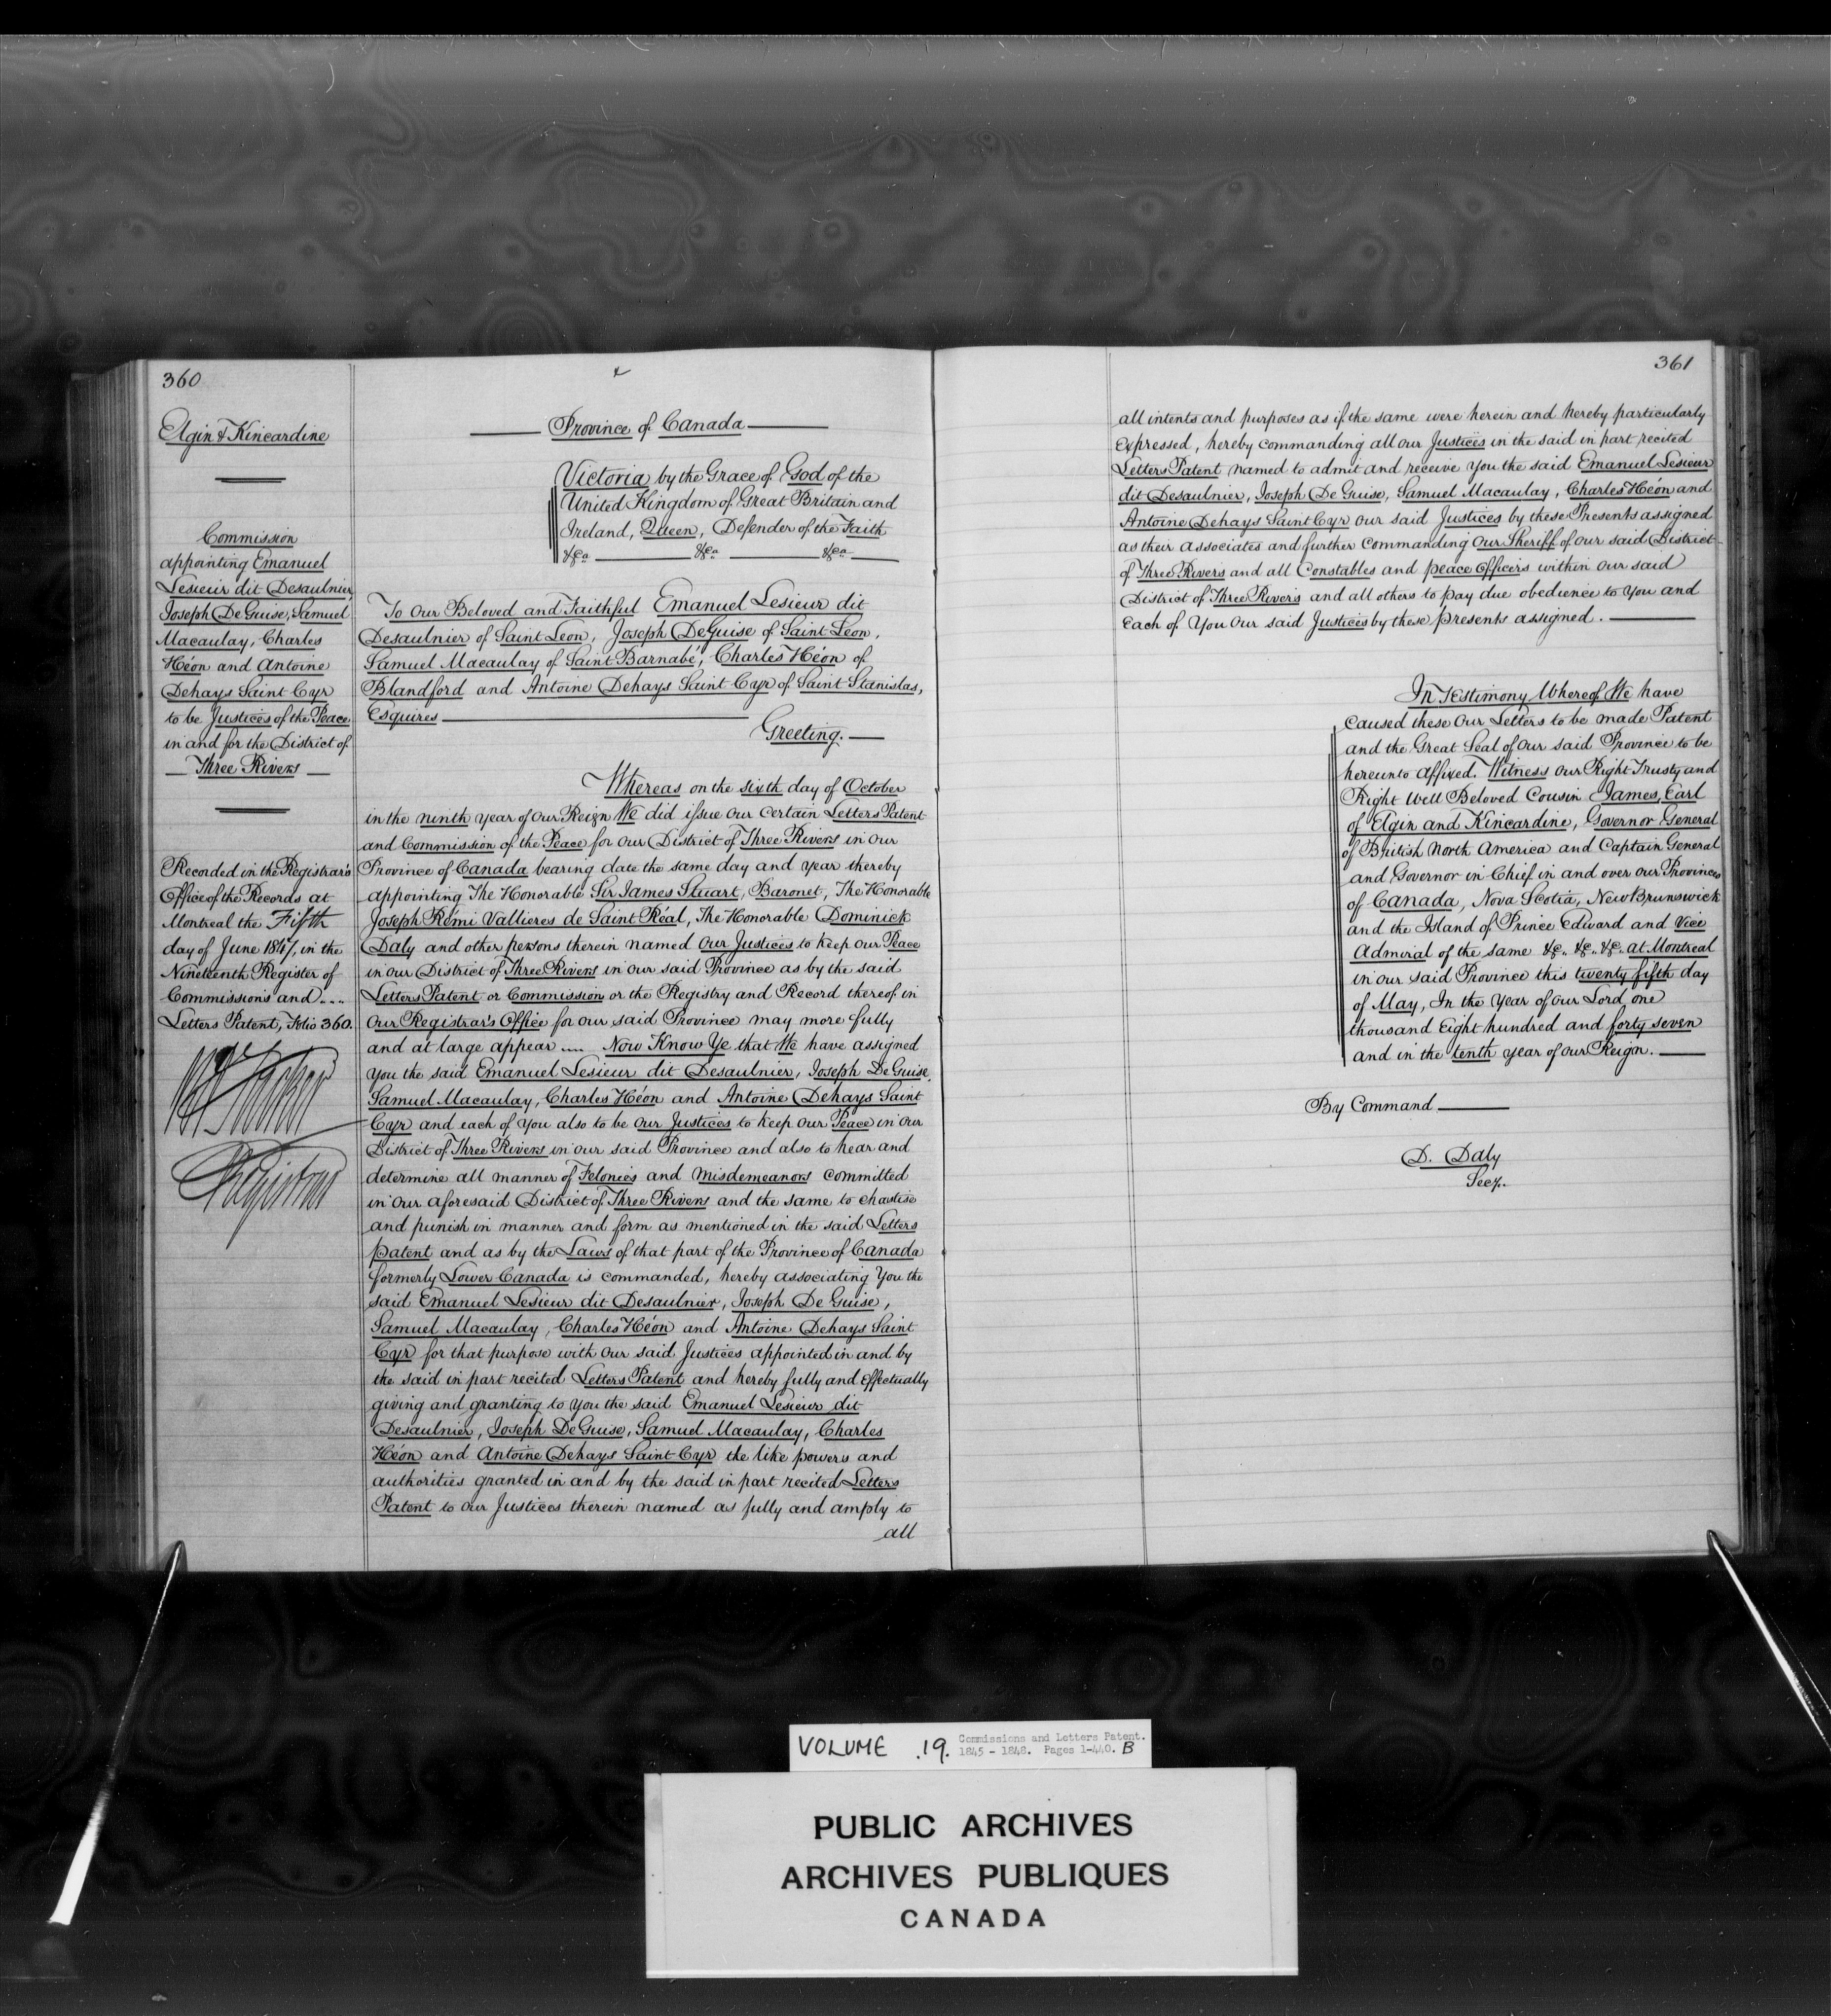 360
Elgin & Kincardine
Commission
appointing Emanuel
Lesieur dit Desaulnier,
Joseph De Guise, Samuel
Macaulay, Charles
Héon and Antoine
Dehays Saint Cyr
to be Justices of the Peace
in and for the District of
Three Rivers
Recorded in the Registrar's
Office of the Records at
Montreal the Fifth
day of June 1847, in the
Nineteenth Register of
Commissions and ....
Letters Patent, Folio 360.
Province of Canada
Victoria by the Grace of God of the
United Kingdom of Great Britain and
Ireland, Queen, Defender of the Faith
&ca &ca &ca
To Our Beloved and Faithful Emanuel Lesieur dit
Desaulnier of Saint Leon, Joseph DeGuise of Saint Leon,
Samuel Macaulay of Saint Barnabé, Charles Héon of
Blandford and Antoine Dehays Saint Cyr of Saint Stanislas,
Esquires
Greeting.
Whereas on the sixth day of October
in the ninth year of Our Reign We did issue Our certain Letters Patent
and Commission of the Peace for Our District of Three Rivers in Our
Province of Canada bearing date the same day and year thereby
appointing The Honorable Sir James Stuart, Baronet, The Honorable
Joseph Rémi Vallieres de Saint Réal, The Honorable Dominick
Daly and other persons therein named Our Justices to keep Our Peace
in Our District of Three Rivers in Our said Province as by the said
Letters Patent or Commission or the Registry and Record thereof in
Our Registrar's Office for Our said Province may more fully
and at large appear .... Now Know Ye that We have assigned
You the said Emanuel Lesieur dit Desaulnier, Joseph De Guise,
Samuel Macaulay, Charles Héon and Antoine Dehays Saint
Cyr and each of You also to be Our Justices to keep Our Peace in Our
District of Three Rivers in Our said Province and also to hear and
determine all manner of Felonies and Misdemeanors committed
in Our aforesaid District of Three Rivers and the same to chastise
and punish in manner and form as mentioned in the said Letters
patent and as by the Laws of that part of the Province of Canada
formerly Lower Canada is commanded, hereby associating You the
said Emanuel Lesieur dit Desaulnier, Joseph De Guise,
Samuel Macaulay, Charles Héon and Antoine Dehays Saint
Cyr for that purpose with Our said Justices appointed in and by
the said in part recited Letters Patent and hereby fully and effectually
giving and granting to You the said Emanuel Lesieur dit
Desaulnier, Joseph De Guise, Samuel Macaulay, Charles
Héon and Antoine Dehays Saint Cyr the like powers and
authorities granted in and by the said in part recited Letters
Patent to Our Justices therein named as fully and amply to
all
361
all intents and purposes as if the same were herein and hereby particularly
expressed, hereby commanding all our Justices in the said in part recited
Letters Patent named to admit and receive You the said Emanuel Lesieur
dit Desaulnier, Joseph De Guise, Samuel Macaulay, Charles Héon and
Antoine Dehays Saint Cyr Our said Justices by these Presents assigned
as their associates and further commanding Our Sheriff of Our said District
of Three Rivers and all Constables and peace Officers within Our said
District of Three Rivers and all others to pay due obedience to You and
each of You Our said Justices by these presents assigned.
In Testimony Whereof We have
caused these Our Letters to be made Patent
and the Great Seal of Our said Province to be
hereunto affixed. Witness Our Right Trusty and
Right Well Beloved Cousin James, Earl
of Elgin and Kincardine, Governor General
of British North America and Captain General
and Governor in Chief in and over Our Provinces
of Canada, Nova Scotia, New Brunswick
and the Island of Prince Edward and Vice
Admiral of the same &c. &c. &c. at Montreal
in Our said Province this twenty fifth day
of May, In the Year of Our Lord, one
thousand Eight hundred and forty seven
and in the tenth year of Our Reign.
By Command
D. Daly
Secy.
VOLUME .19. Commissions and Letters Patent.
1845 - 1848. Pages 1-440. B
PUBLIC ARCHIVES
ARCHIVES PUBLIQUES
CANADA